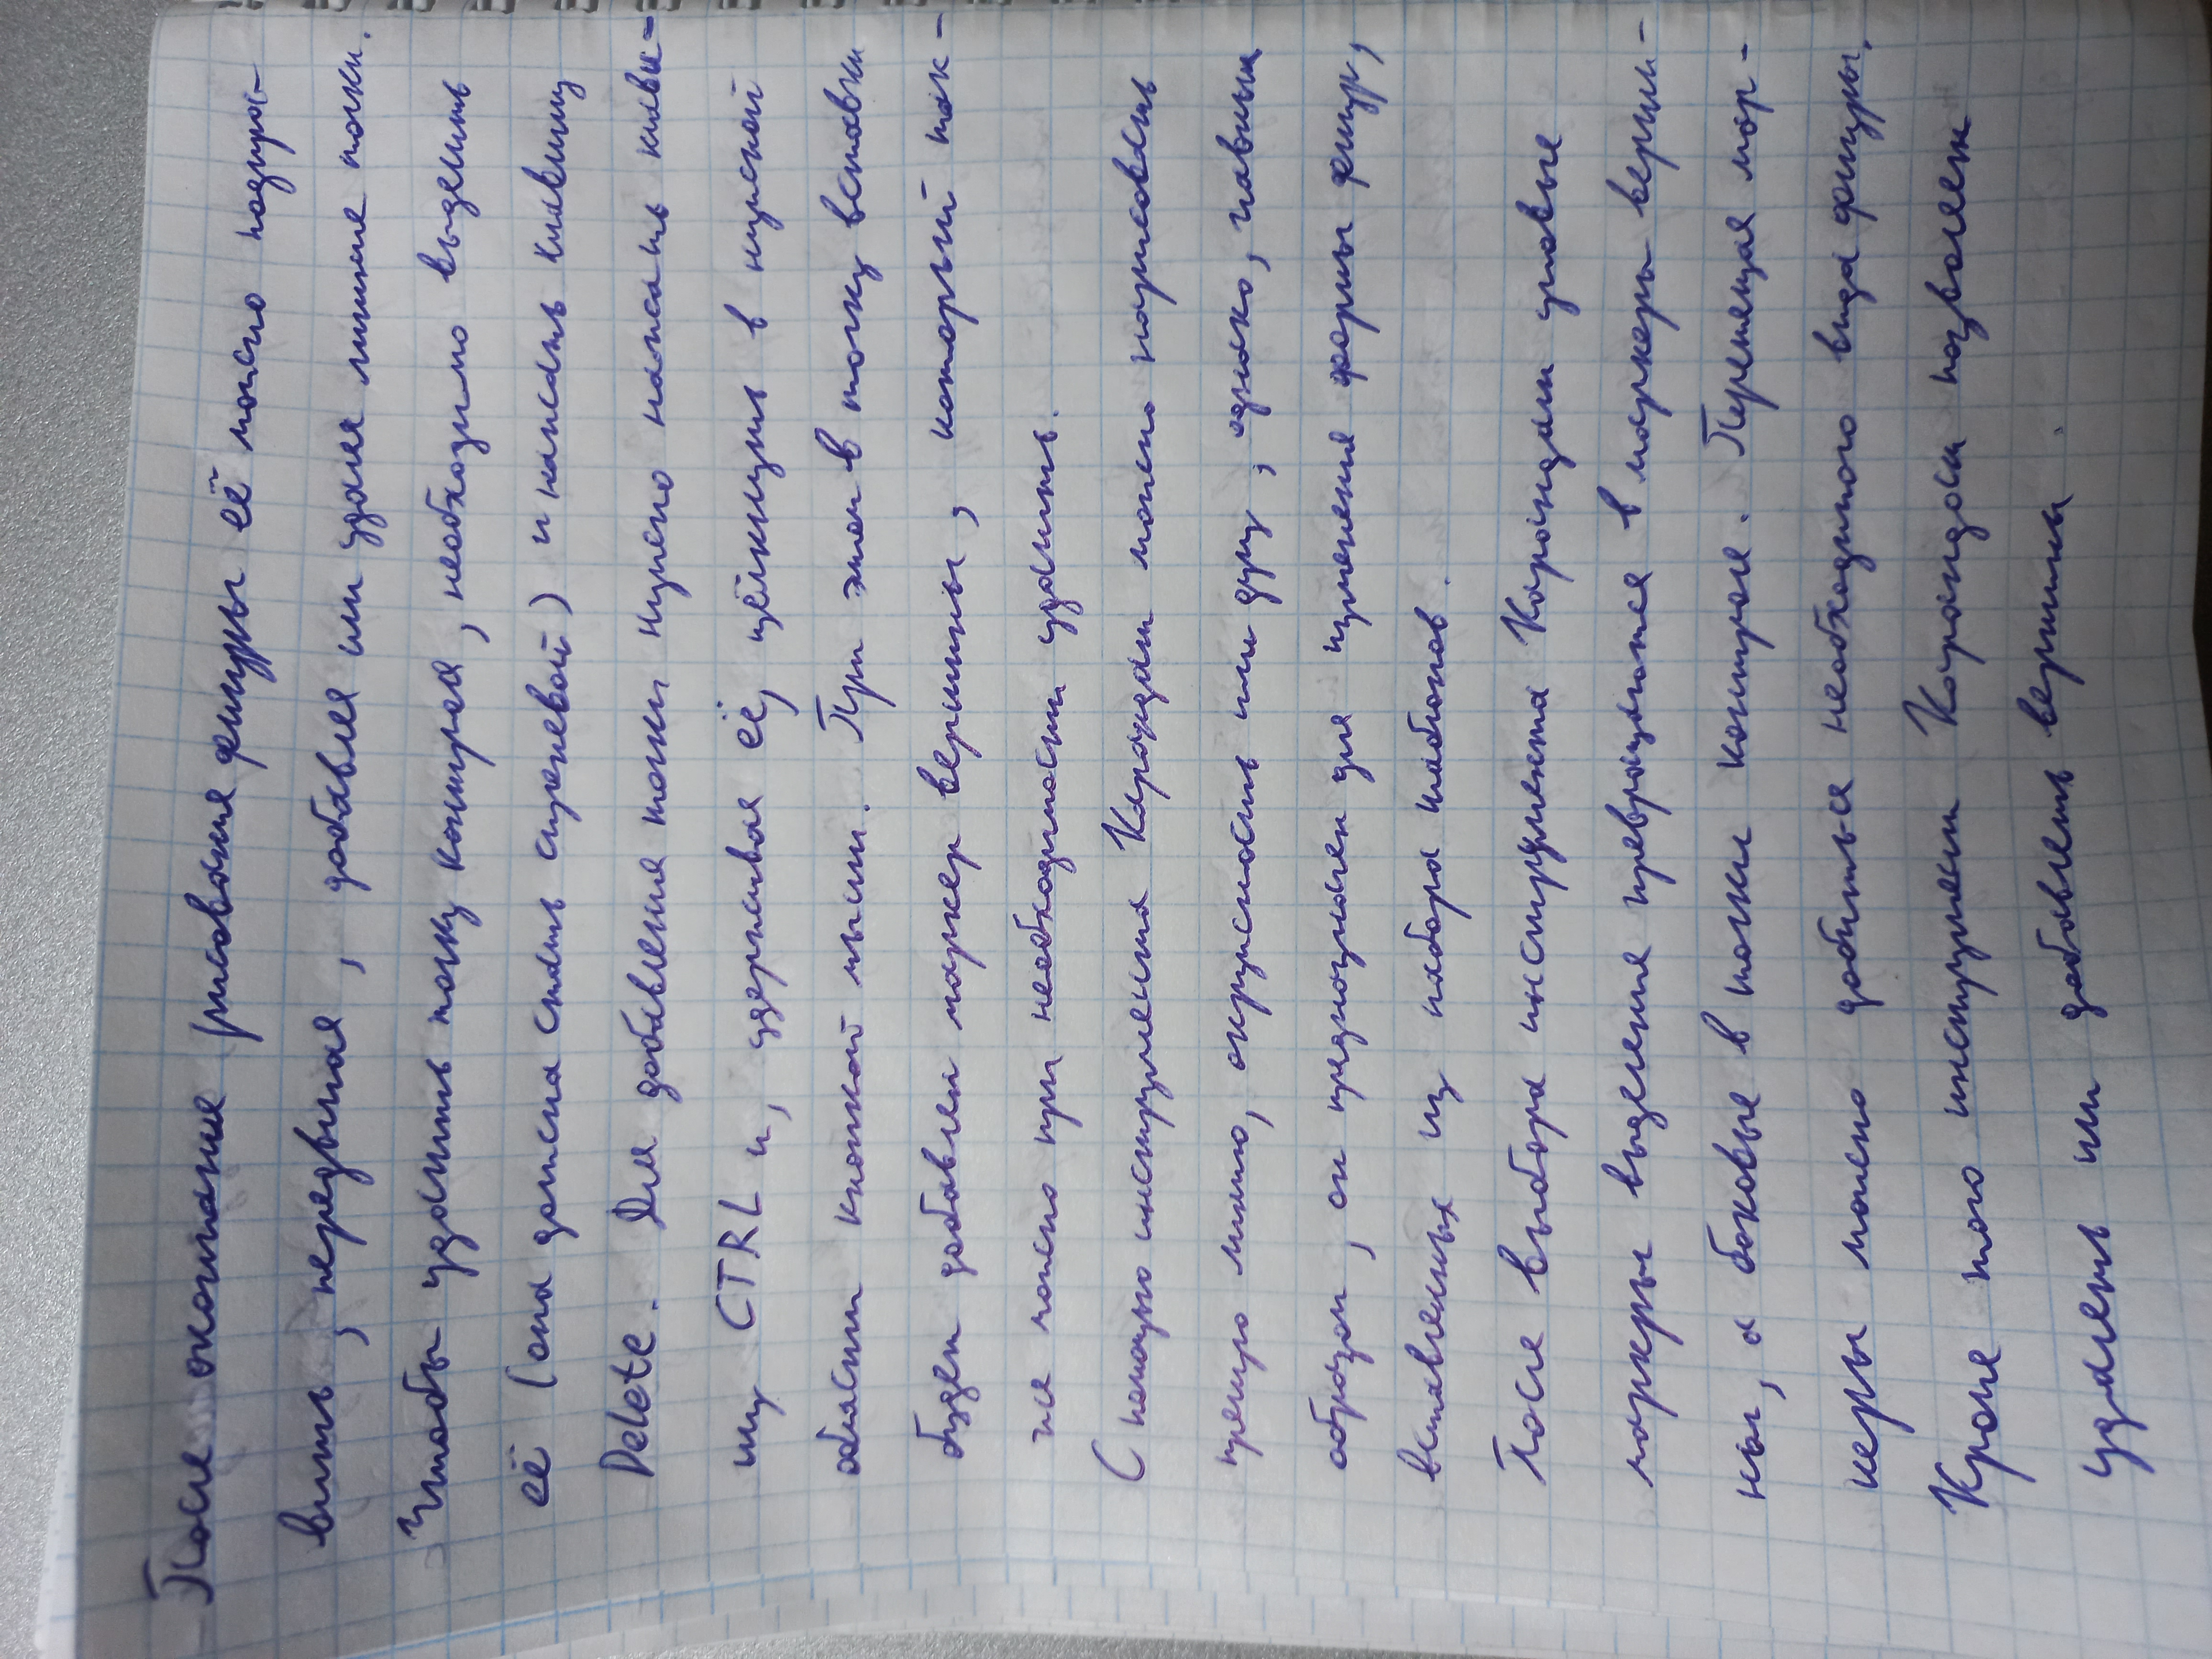 После окончание рисования фигуры её можно подпра-
вить, передвигая, добавляя или удаляя лишние точки.
Чтобы удалить точку контура, необходимо выделить
её (она должна стать сиреневой) и нажать клавишу
Delete. Для добавления точки нужно нажать клави-
шу CTRL и, удерживая её, щёлкнуть в нужной
области кнопкой мыши. При этом в точку вставки
будет добавлен маркер вершины, который так-
же можно при необходимости удалить.
С помощью инструмента Карандаш можно нарисовать
прямую линию, окружность или дугу, однако, главным
образом, он предназначен для изменения формы фигур,
вставленных из набора шаблонов.
После выбора инструмента Карандаш угловые
маркеры выделения превращаются в маркеры верши-
ны, а боковые в точки контроля. Перемещая мар-
керы можно добиться необходимого вида фигуры.
Кроме того инструмент Карандаш позволяет
удалять или добавлять вершины.